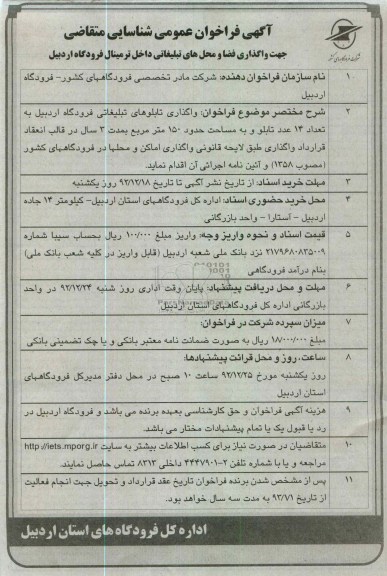 آگهی فراخوان عمومی شناسایی متقاضی
جهت واگذاری فضا و محل های تبلیغاتی داخل ترمینال فرودگاه اردبیل
۱ نام سازمان فراخوان دهنده: شرکت مادر تخصصی فرودگاههای کشور- فرودگاه
اردبیل
۲ شرح مختصر موضوع فراخوان: واگذاری تابلوهای تبلیغاتی فرودگاه اردبیل به
تعداد ۱۴ عدد تابلو و به مساحت حدود ۱۵۰ متر مربع بمدت ۳ سال در قالب انعقاد
قرارداد واگذاری طبق لایحه قانونی واگذاری اماکن و محلها در فرودگاههای کشور
(مصوب ۱۳۵۸) و آئین نامه اجرائی آن اقدام نماید.
۳ مهلت خرید اسناد: از تاریخ نشر آگهی تا تاریخ ۹۲/۱۲/۱۸ روز یکشنبه
۴ محل خرید حضوری اسناد: اداره کل فرودگاههای استان اردبیل- کیلومتر ۱۴ جاده
اردبیل - آستارا - واحد بازرگانی
۵ قیمت اسناد و نحوه واریز وجه: واریز مبلغ ۱۰۰/۰۰۰ ریال بحساب سیبا شماره
۲۱۷۹۶۸۰۸۳۵۰۰۹ نزد بانک ملی شعبه اردبیل (قابل واریز در کلیه شعب بانک ملی)
بنام درآمد فرودگاهی
۶ مهلت و محل دریافت پیشنهاد: پایان وقت اداری روز شنبه ۹۲/۱۲/۲۴ در واحد
بازرگانی اداره کل فرودگاههای استان اردبیل
۷ میزان سپرده شرکت در فراخوان:
مبلغ ۱۸/۰۰۰/۰۰۰ ریال به صورت ضمانت نامه معتبر بانکی و یا چک تضمینی بانکی
۸ ساعت، روز و محل قرائت پیشنهادها:
روز یکشنبه مورخ ۹۲/۱۲/۲۵ ساعت ۱۰ صبح در محل دفتر مدیرکل فرودگاههای
استان اردبیل
۹ هزینه آگهی فراخوان و حق کارشناسی بعهده برنده می باشد و فرودگاه اردبیل در
رد یا قبول یک یا تمام پیشنهادات مختار می باشد.
۱۰ متقاضیان در صورت نیاز برای کسب اطلاعات بیشتر به سایت http://iets.mporg.ir
مراجعه و یا با شماره تلفن ۲-۴۴۴۷۹۰۱ داخلی ۸۳۱۳ تماس حاصل نمایند.
۱۱ پس از مشخص شدن برنده فراخوان تاریخ عقد قرارداد و تحویل جهت انجام فعالیت
از تاریخ ۹۳/۷۱ به مدت سه سال خواهد بود.
اداره کل فرودگاه های استان اردبیل